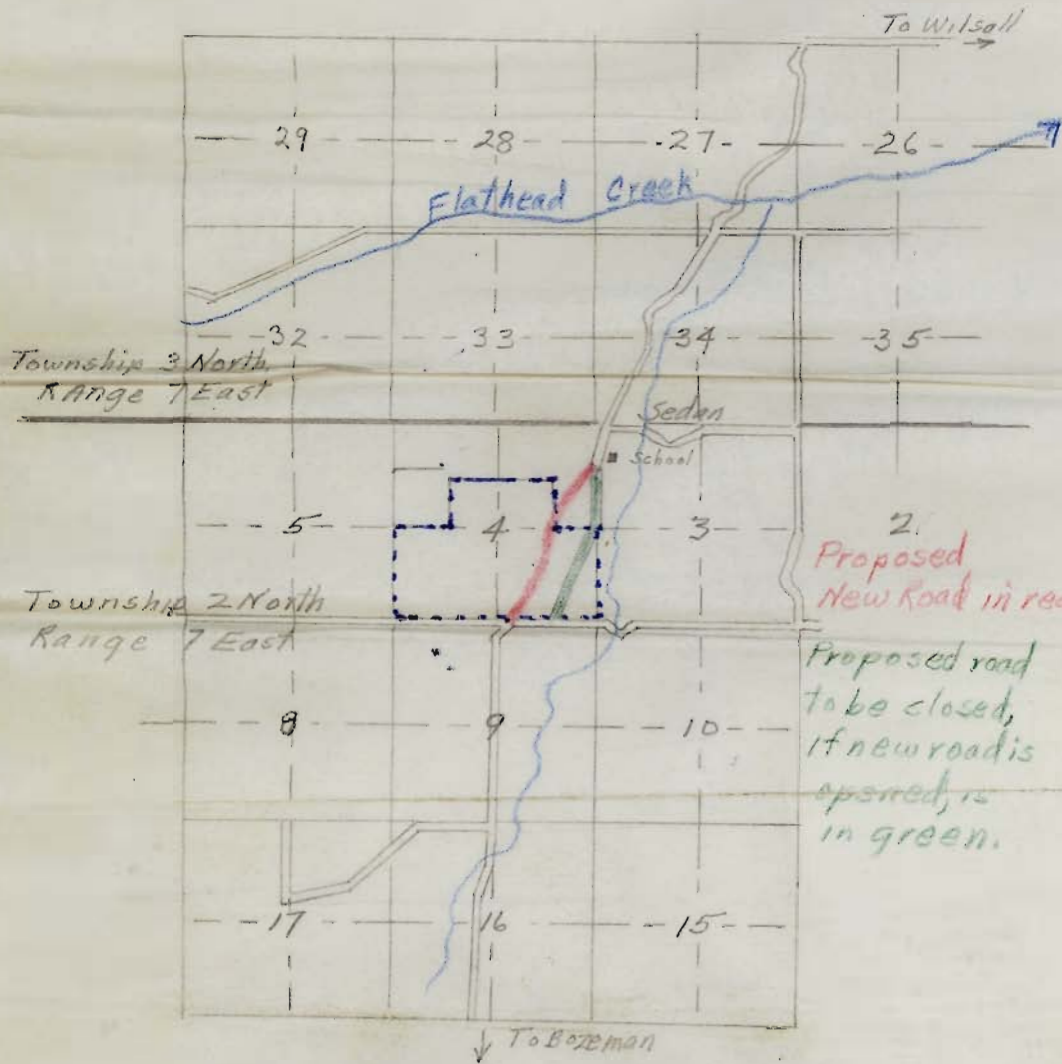 To Wilsall
29 28 27 26
Flathead Creek
32 33 34 35
Township 3 North
Range 7 East
Sedan
School
5 4 3 2
Proposed
New Road in red
Township 2 North
Range 7 East
Proposed road
to be closed,
if new road is
opened, is
in green.
8 9 10
17 16 15
To Bozeman